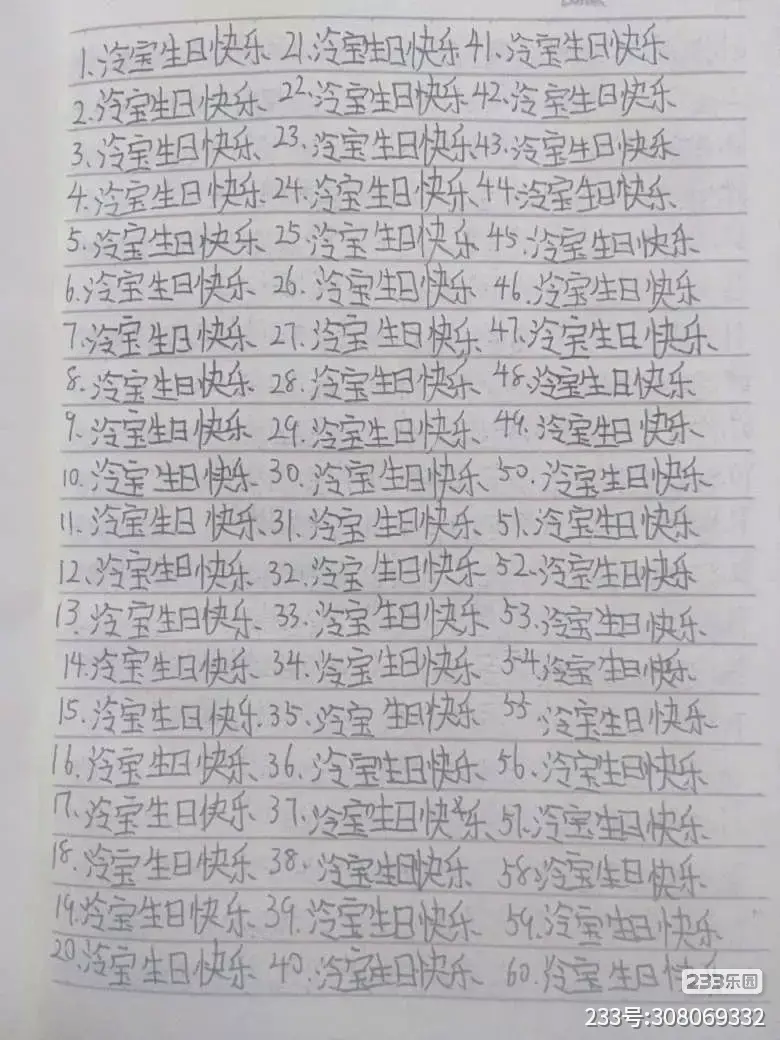 1.泠宝生日快乐 21.泠宝生日快乐 41.泠宝生日快乐
2.泠宝生日快乐 22.泠宝生日快乐 42.泠宝生日快乐
3.泠宝生日快乐 23.泠宝生日快乐 43.泠宝生日快乐
4.泠宝生日快乐 24.泠宝生日快乐 44.泠宝生日快乐
5.泠宝生日快乐 25.泠宝生日快乐 45.泠宝生日快乐
6.泠宝生日快乐 26.泠宝生日快乐 46.泠宝生日快乐
7.泠宝生日快乐 27.泠宝生日快乐 47.泠宝生日快乐
8.泠宝生日快乐 28.泠宝生日快乐 48.泠宝生日快乐
9.泠宝生日快乐 29.泠宝生日快乐 49.泠宝生日快乐
10.泠宝生日快乐 30.泠宝生日快乐 50.泠宝生日快乐
11.泠宝生日快乐 31.泠宝生日快乐 51.泠宝生日快乐
12.泠宝生日快乐 32.泠宝生日快乐 52.泠宝生日快乐
13.泠宝生日快乐 33.泠宝生日快乐 53.泠宝生日快乐
14.泠宝生日快乐 34.泠宝生日快乐 54.泠宝生日快乐
15.泠宝生日快乐 35.泠宝生日快乐 55.泠宝生日快乐
16.泠宝生日快乐 36.泠宝生日快乐 56.泠宝生日快乐
17.泠宝生日快乐 37.泠宝生日快乐 57.泠宝生日快乐
18.泠宝生日快乐 38.泠宝生日快乐 58.泠宝生日快乐
19.泠宝生日快乐 39.泠宝生日快乐 59.泠宝生日快乐
20.泠宝生日快乐 40.泠宝生日快乐 60.泠宝生日快乐
233乐园
233号:308069332